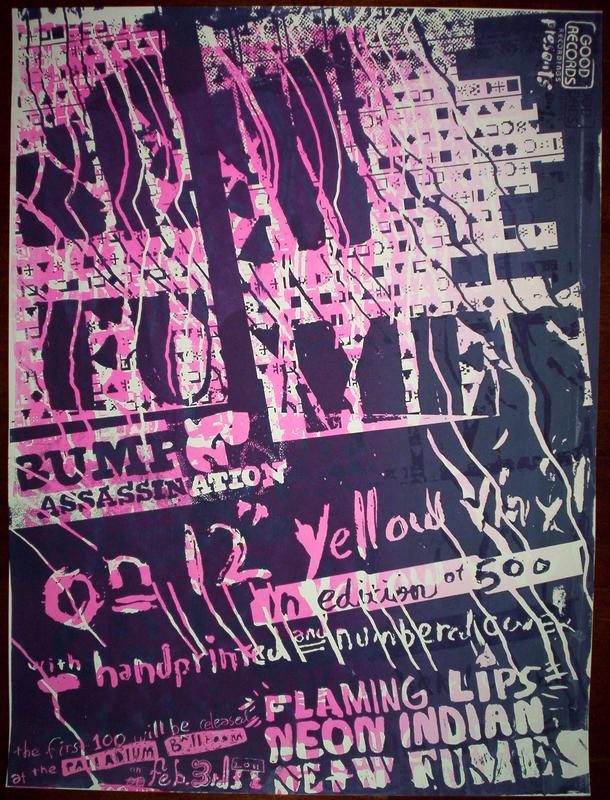 GOOD
RECORDS
RECORDINGS
presents
BUMP
ASSASSINATION
on 12" yellow vinyl
in edition of 500
with handprinted and numbered cover
FLAMING LIPS
NEON INDIAN
NEW FUMES
the first 100 will be released
at the PALLADIUM Ballroom
on feb. 3rd